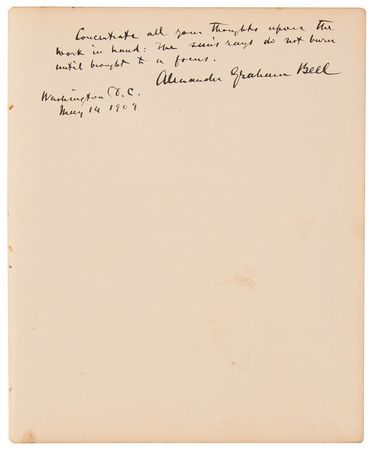 Concentrate all your thoughts upon the
work in hand: The sun's rays do not burn
until brought to a focus.
Alexander Graham Bell
Washington D.C.
May 14 1909